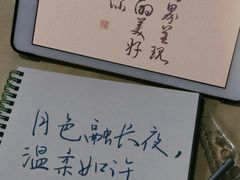 界呈现
的美好
月色融长夜，
温柔如许